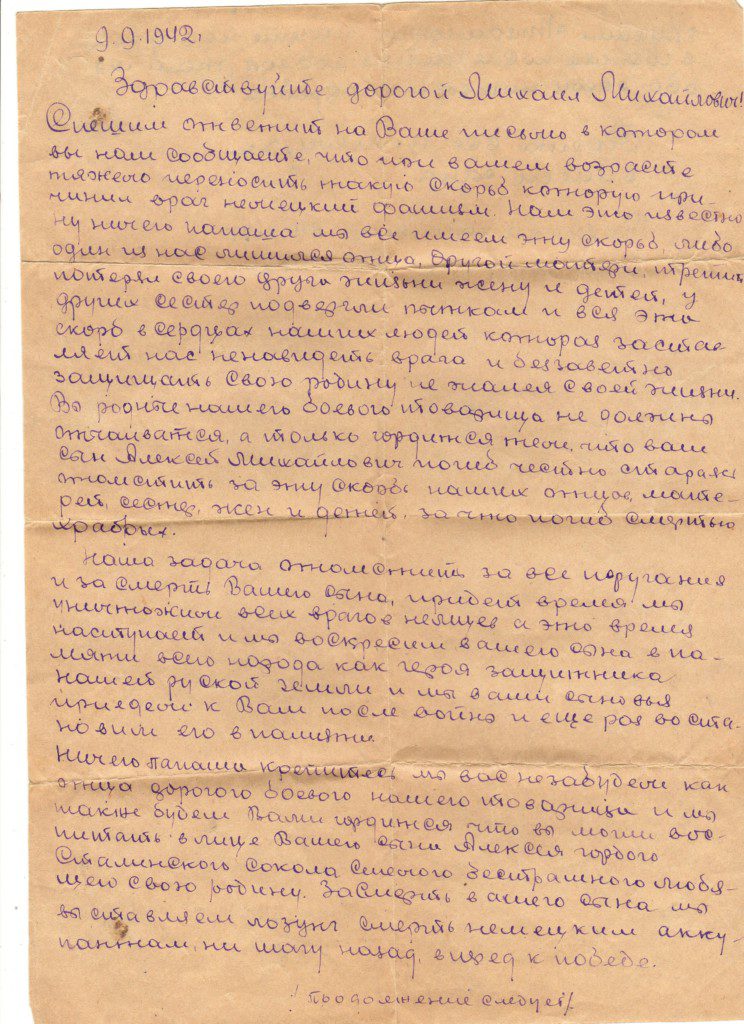 9.9.1942г.
Здравствуйте дорогой Михаил Михайлович!
Спешим ответит на Ваше письмо в котором
вы нам сообщаете, что при вашем возрасте
тяжело переносить такую скорьб которую при-
чинил враг немецкий фашизм. Нам это известно
ну ничего папаша мы все имеем эту скорьб, либо
один из нас лишился отца, другой матери, третий
потерял своего друга жизьни жену и детей, у
других сестер подвергли пыткам и вся эта
скорб в сердцах наших людей которая застав
ляет нас ненавидеть врага и беззаветно
защищать свою родину не жалея своей жизни.
Вы родите нашего боевого товарища не должны
отчаиватся, а только гордится тем, что ваш
сын Алексей Михайлович погиб честно стараяс
отомстить за эту скорбь наших отцов, мате-
рей, сестер, жен и детей, за что погиб смертью
храбрых.
Наша задача отомстить за все поругания
и за смерть Вашего сына, придет время мы
уничтожим всех врагов немцев а это время
наступает и мы воскресим вашего сына в па-
мяти всего народа как героя защитника
нашей руской земли и мы ваши сыновья
приедем к Вам после войны и еще раз воста-
новим его в памяти
Ничего папаша крепитесь мы вас незабудем как
отца дорогого боевого нашего товарища и мы
также будем Вами гордится что вы могли вос-
питать в лице Вашего сына Алексея гордого
Сталинского сокола смелого бесстрашного любя-
щего свою родину. Засмерть вашего сына мы
выставляем лозунг смерть немецким окку-
пантам, ни шагу назад, вперед к победе.
/продолжение следует/